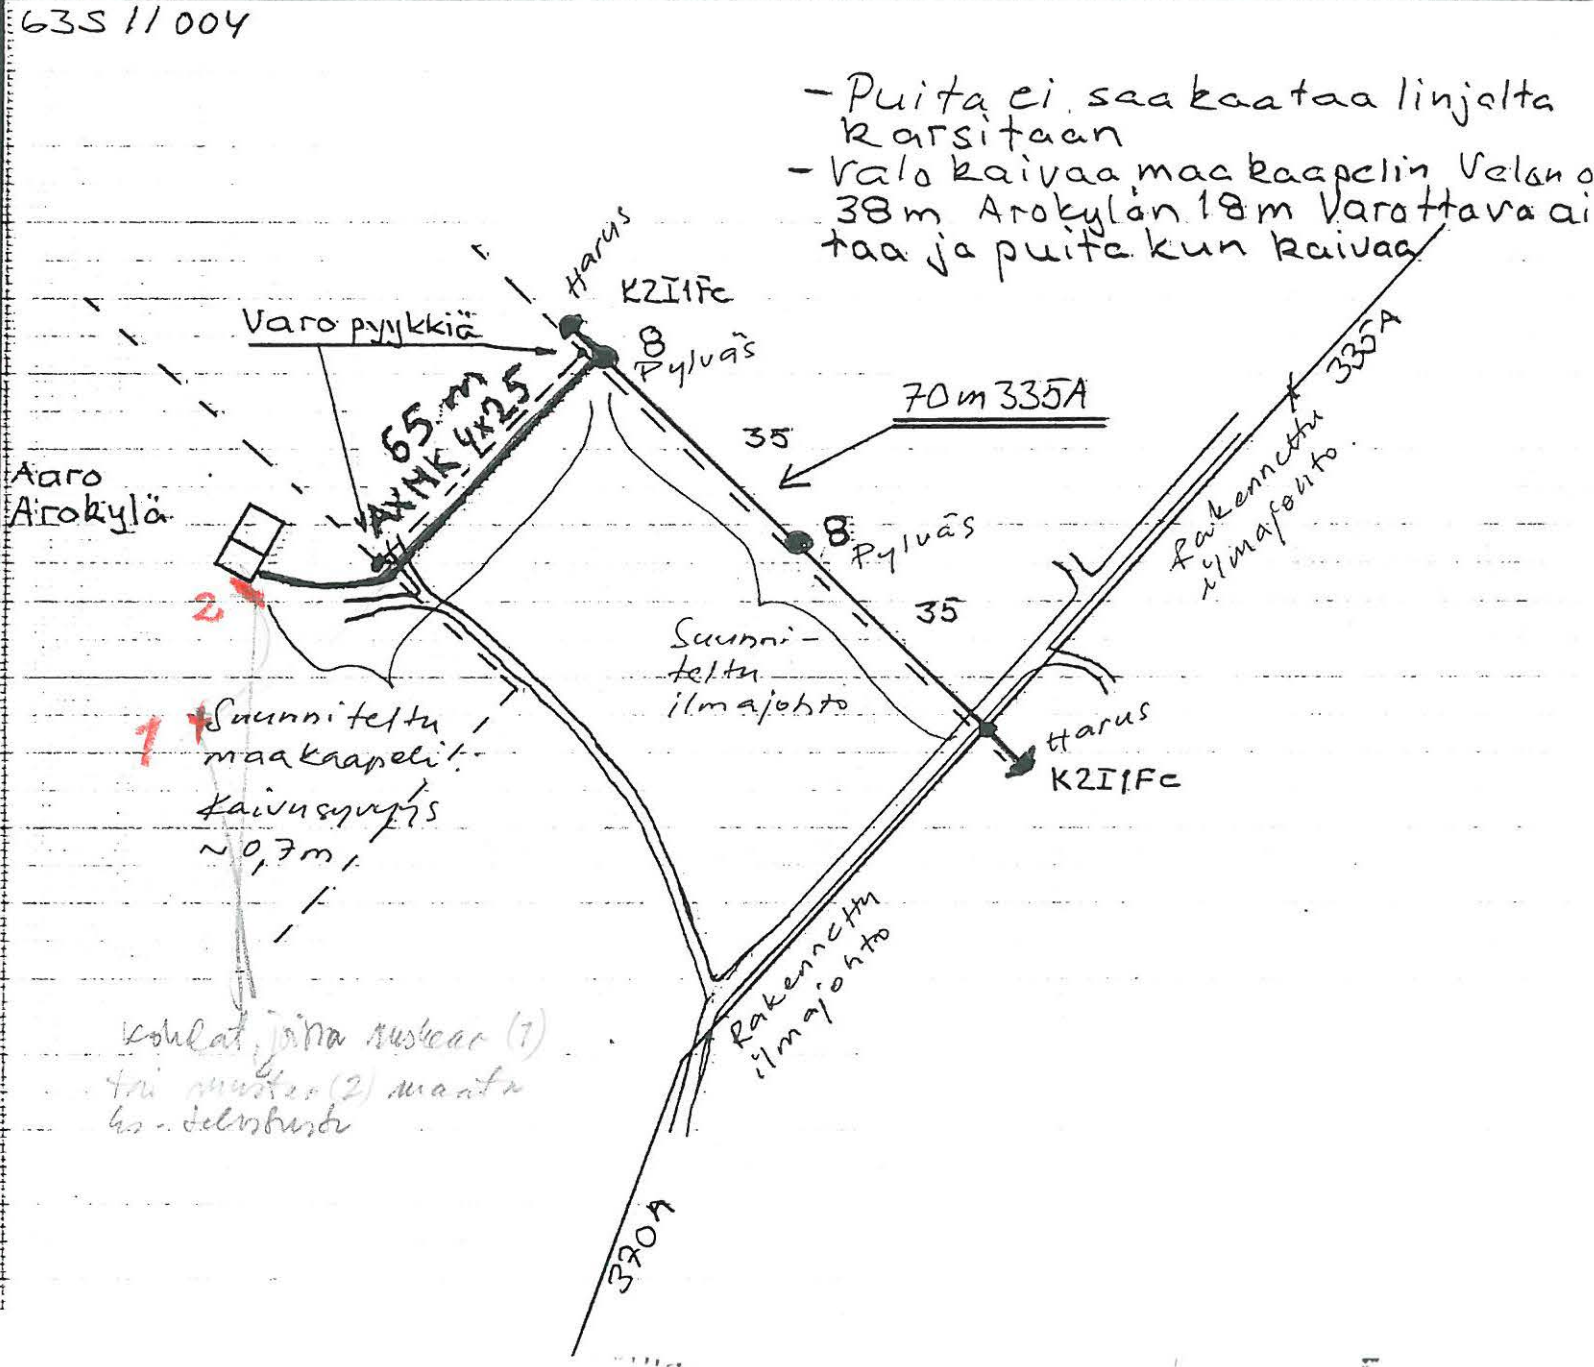 63S 11 004
- Puita ei saa kaataa linjalta
karsitaan
- Valo kaivaa maakaapelin Velano
38m Arokylän 18m Varottava ai
taa ja puita kun kaivaa
Harus
K2I1Fc
Varo pyykkiä
8
Pylväs
335A
65 m
AXMK 4x25
70m 335A
35
Aaro
Arokylä
Rakennettu
ilmajohto
8
Pylväs
2
35
Suunni-
teltu
ilmajohto
1
Suunniteltu
maakaapeli!
Harus
K2I1Fc
Kaivusyvyys
~0,7m
Rakennettu
ilmajohto
Kohdat, joissa ruskeaa (1)
tai mustaa (2) maata
370A